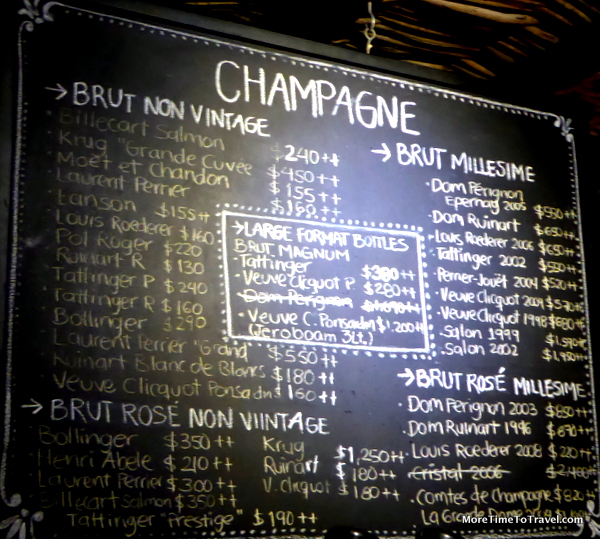 CHAMPAGNE
→BRUT NON VINTAGE
Billecart Salmon $240++
Krug "Grande Cuvée $450++
Moët et Chandon $155++
Laurent Perrier $160++
Lanson $155++
Louis Roederer $160
Pol Roger $220
Ruinart R $130
Taittinger P $240
Taittinger R $160
Bollinger $290
Laurent Perrier "Grand $550++
Ruinart Blanc de Blancs $180++
Veuve Clicquot Ponsadin $160++
→LARGE FORMAT BOTTLES
BRUT MAGNUM
·Taittinger $380++
·Veuve Clicquot P. $280++
·Dom Perignon
·Veuve C. Ponsadin $1,200++
(Jeroboam 3Lt.)
→BRUT MILLESIME
·Dom Pérignon
Epernay 2005 $550++
·Dom Ruinart $650++
·Louis Roederer 2006 $650++
·Taittinger 2002 $550++
·Perrier-Jouët 2004 $520++
·Veuve Clicquot 2004 $570++
·Veuve Clicquot 1998 $680++
·Salon 1999
·Salon 2002
→BRUT ROSÉ MILLESIME
·Dom Perignon 2003 $850++
·Dom Ruinart 1996 $690++
·Louis Roederer 2008 $220++
·Cristal 2006
·Comtes de Champagne $820++
La Grande Dame
→BRUT ROSÉ NON VIINTAGE
Bollinger $350++
Henri Abele $210++
Laurent Perrier $300++
Billecart Salmon $350++
Taittinger "Prestige" $190++
Krug $1,250++
Ruinart $180++
V. Clicquot $180++
MoreTimeToTravel.com